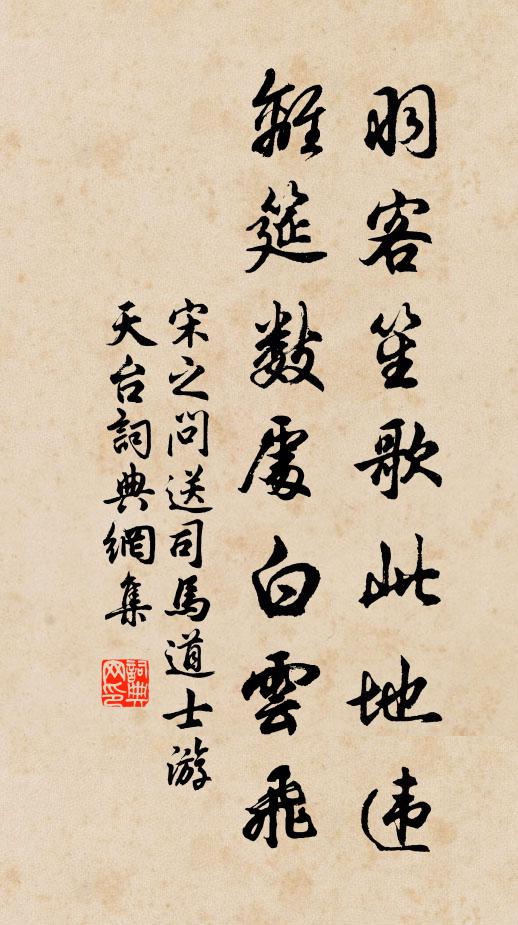 羽客笙歌此地违
離筵數處白雲飛
宋之问送司馬道士游
天台詞典網集
詞典网印